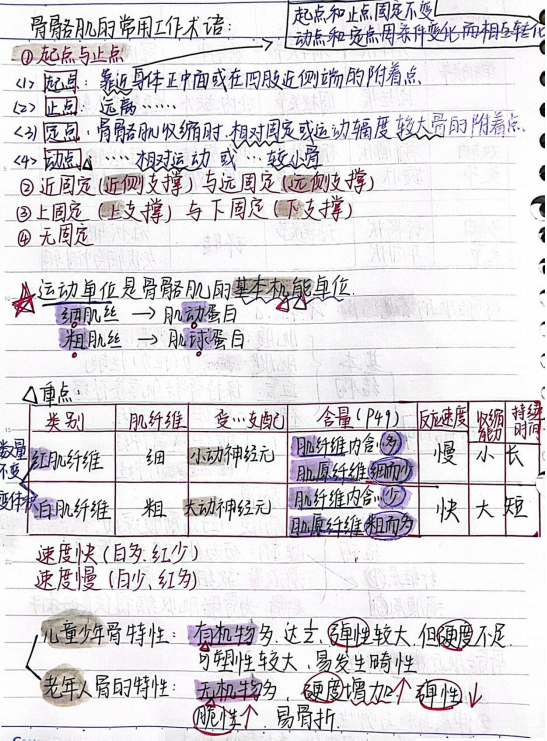 骨骼肌的常用工作术语:
起点和止点固定不变
动点和定点因条件变化而相互转化
①起点与止点
<1> 起点:靠近身体正中面或在四肢近侧端的附着点
<2> 止点:远离……
<3> 定点:骨骼肌收缩时,相对固定或运动幅度较大骨的附着点
<4> 动点:……相对运动 或…较小骨
②近固定(近侧支撑)与远固定(远侧支撑)
③上固定(上支撑)与下固定(下支撑)
④无固定
运动单位是骨骼肌的基本机能单位.
细肌丝 → 肌动蛋白
粗肌丝 → 肌球蛋白
△重点:
类别 肌纤维 受…支配 含量(P49) 反应速度 收缩能力 持续时间
红肌纤维 细 小动神经元 肌纤维内含(多) 肌原纤维细而少 慢 小 长
白肌纤维 粗 大动神经元 肌纤维内含(少) 肌原纤维粗而多 快 大 短
数量不变
速度快(白多.红少)
速度慢(白少、红多)
儿童少年骨特性:有机物多.达去,弹性较大,但硬度不足.
可塑性较大,易发生畸性
老年人骨的特性:无机物多,硬度增加↑ 弹性↓
脆性↑,易骨折.